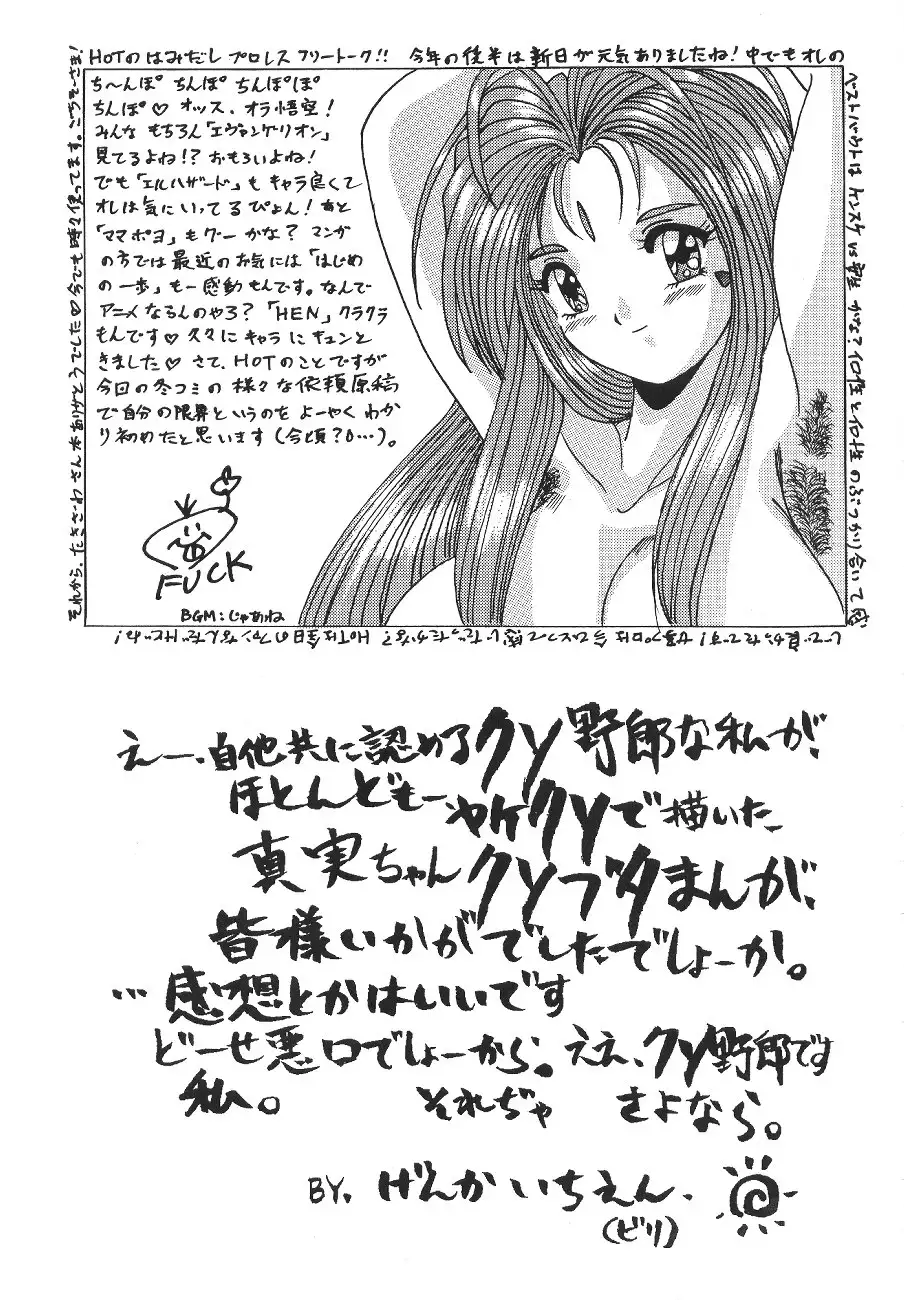 HOTのはみだしプロレスフリートーク!! 今年の後半は新日が元気ありましたね!中でもオレの
ベストバウトは ケンスケ vs かな?個性と個性のぶつかり合いて
じで良かったです! HOTは全日のファンなんだけどね!
それから、たきざわさん本ありがとうでした♡今でも時々使ってます。ごちそーさま!
ち〜んぽ ちんぽ ちんぽぽ
ちんぽ♡ オッス、オラ悟空!
みんな もちろん「エヴァンゲリオン」
見てるよね!? おもろいよね!
でも「エルハザード」も キャラ良くて
オレは気にいってるぴょん! あと
「ママポヨ」もグーかな? マンガ
の方では最近のお気には「はじめ
の一歩」も一感動もんです。なんで
アニメなるんのやろ?「HEN」クラクラ
もんです♡ 久々にキャラにキュンと
きました♡ さて、HOTのことですが
今回の冬コミの 様々な依頼原稿
で自分の限界というのを よーやく わか
り初めたと思います(今頃?0…)。
FUCK
BGM:じゃあね
えー、自他共に認めるクソ野郎な私が、
ほとんどもーヤケクソで描いた、
真実ちゃんクソブタまんが、
皆様いかがでしたでしょーか。
…感想とかはいいです
どーせ悪口でしょーから。ええ、クソ野郎です
私。 それぢゃ さよなら。
BY. げんかいちえん.
(ビリ)